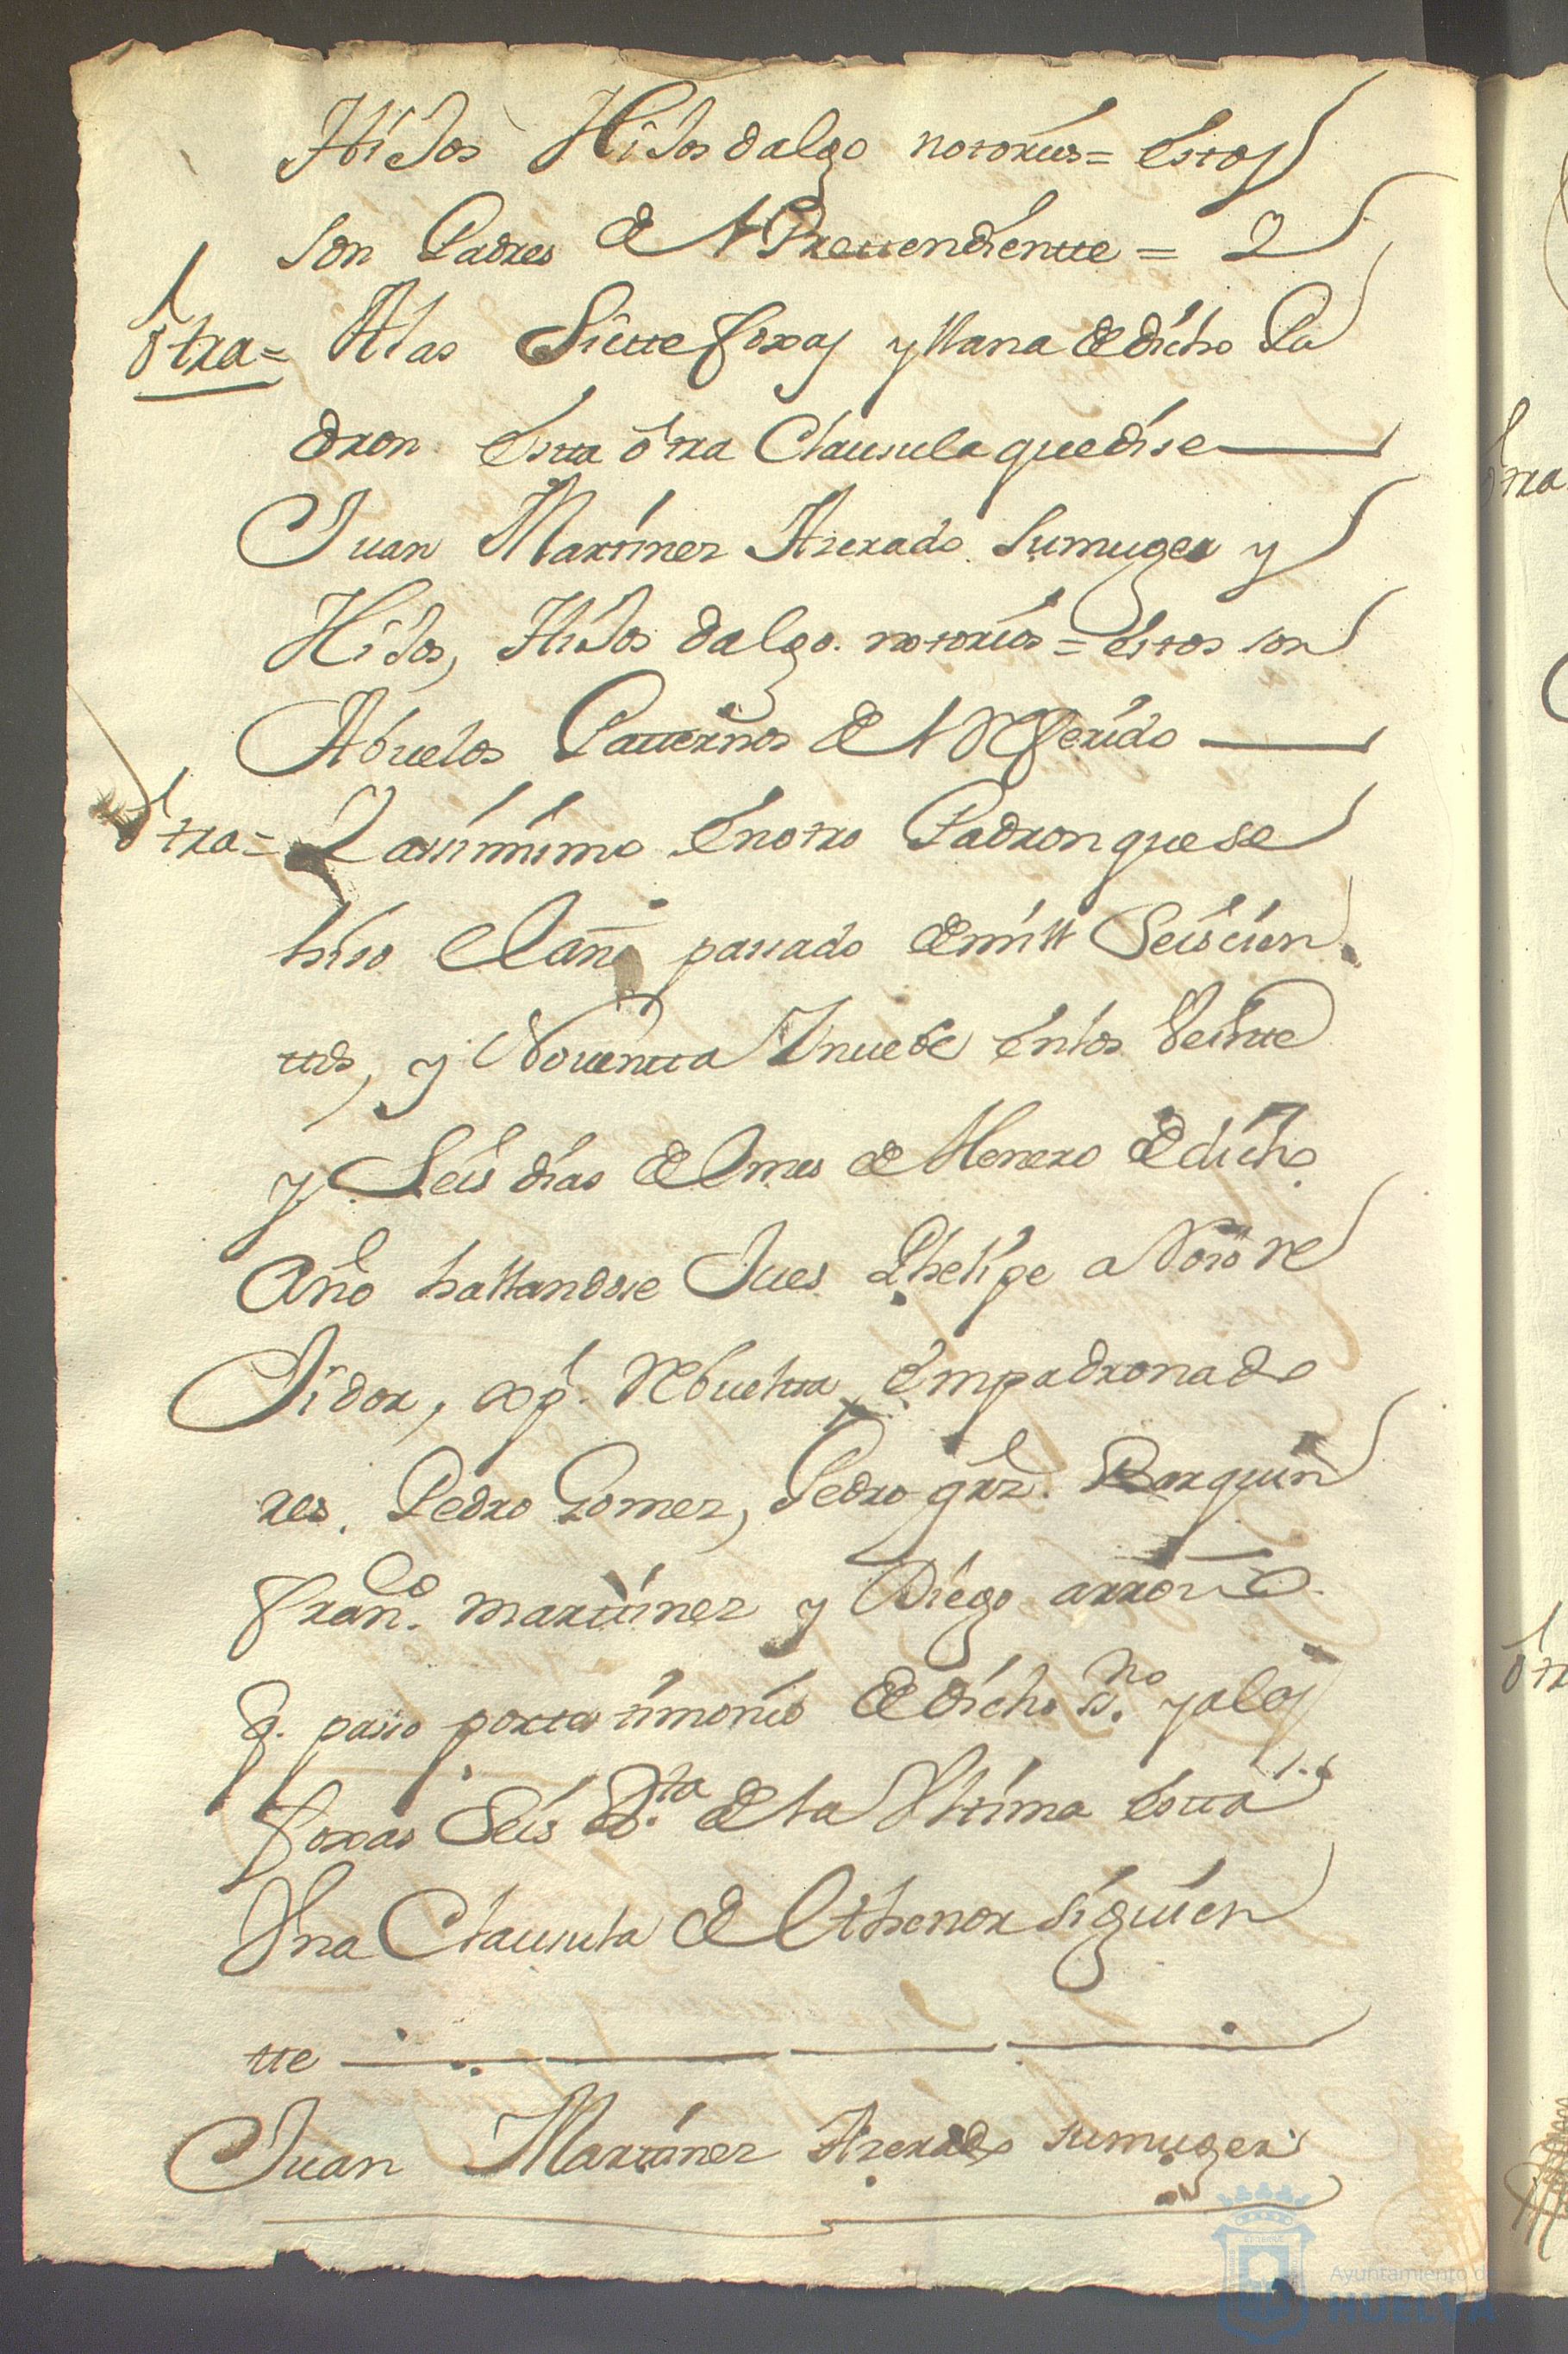 Hijos Hijos dalgo notorios = estos
son Padres del Prettendientte = Y
otra = A las Siette foxas y llana de dicho Pa
dron estta otra Clausula que dise
Juan Martines Azerado su muger y
Hijos, Hijos dalgo notorios = estos son
Abuelos Patternos del Referido
otra = Y assimismo en otro Padron que se
hiso el año passado de mill Seiscien
ttos, y Noventta y nuebe en los Veintte
y Seis dias del mes de Henero de dicho
Año hallandose Jues Phelipe
Jidor, Rebuelta, empadronado
res. Pedro Gomez, Pedro grz. Barquin
Fran.co Marttinez y Diego
q. passo por testimonio de dicho ss.no y a las
foxas Seis B.ta de la Ultima estta
Una Clausula del thenor siguien
tte
Juan Marttinez Azerado su muger
otra
otra
Ayuntamiento de
HUELVA